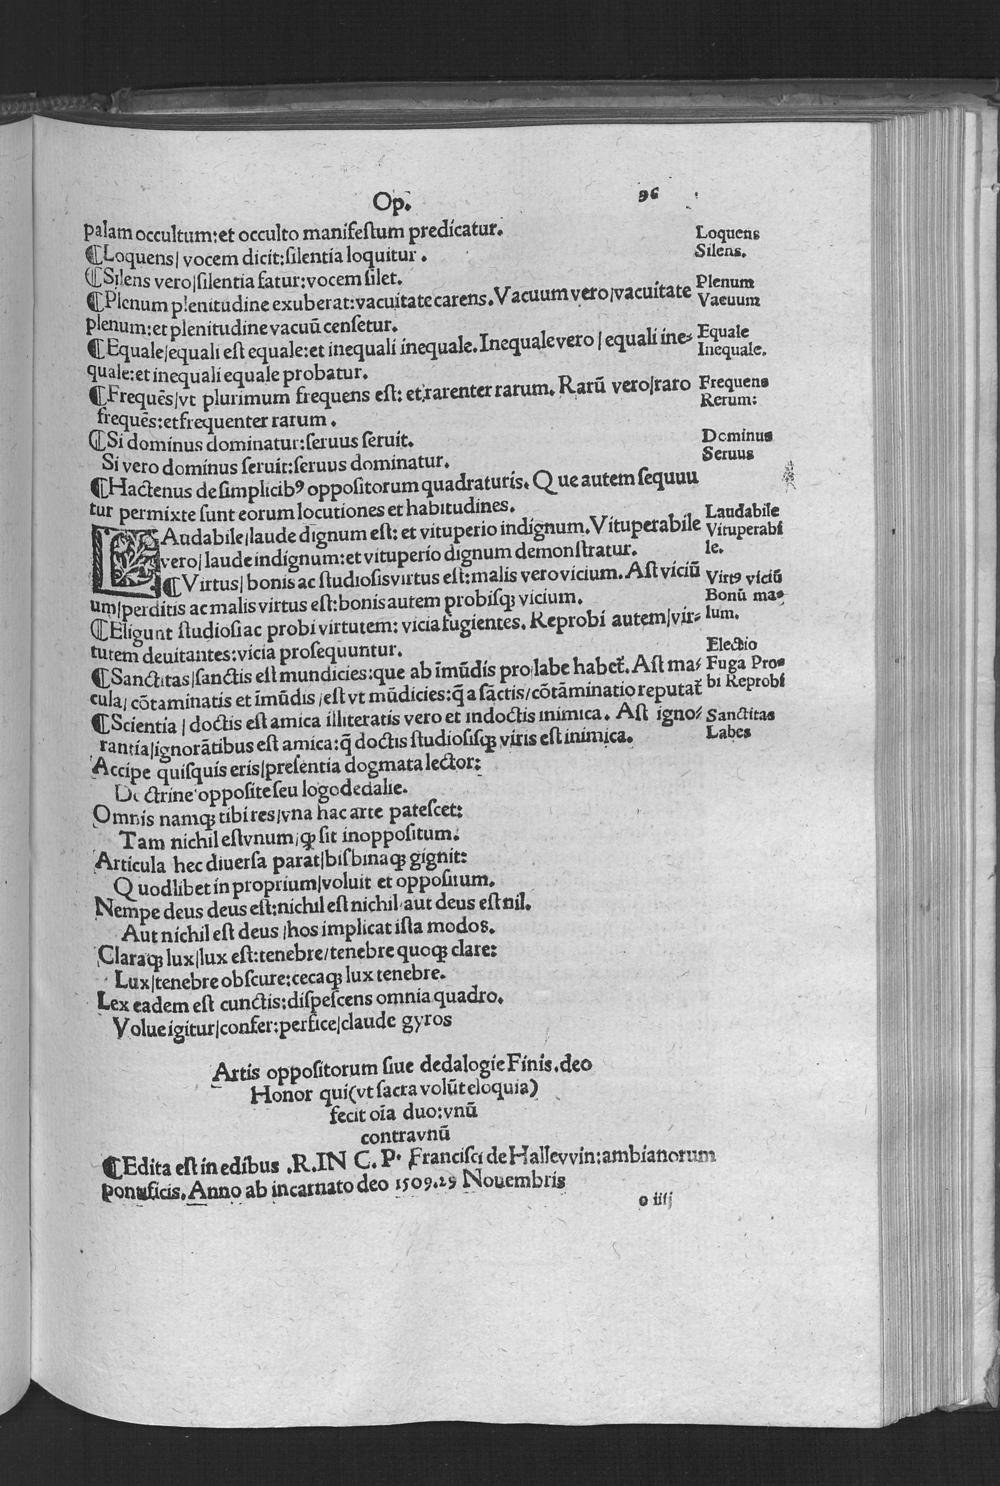 Op. 96
palam occultum: et occulto manifeſtum predicatur.
¶Loquens/ vocem dicit: ſilentia loquitur.
¶Silens vero/ſilentia fatur: vocem ſilet.
¶Plenum plenitudine exuberat: vacuitate carens. Vacuum vero/vacuitate
plenum: et plenitudine vacuū cenſetur.
¶Equale/equali eſt equale: et inequali inequale. Inequale vero / equali ine⸗
quale: et inequali equale probatur.
¶Frequēs/vt plurimum frequens eſt: et rarenter rarum. Rarū vero/raro
frequēs: et frequenter rarum.
¶Si dominus dominatur: ſeruus ſeruit.
Si vero dominus ſeruit: ſeruus dominatur.
¶Hactenus de ſimplicibꝰ oppoſitorum quadraturis. Que autem ſequuu
tur permixte ſunt eorum locutiones et habitudines.
LAudabile/laude dignum eſt: et vituperio indignum. Vituperabile
vero/ laude indignum: et vituperio dignum demonſtratur.
¶Virtus/ bonis ac ſtudioſis virtus eſt: malis vero vicium. Aſt viciū
um/perditis ac malis virtus eſt: bonis autem probiſqȝ vicium.
¶Eligunt ſtudioſi ac probi virtutem: vicia fugientes. Reprobi autem/vir⸗
tutem deuitantes: vicia proſequuntur.
¶Sanctitas/ſanctis eſt mundicies: que ab īmūdis pro labe habet᷑. Aſt ma⸗
cula/ cōtaminatis et īmūdis /eſt vt mūdicies: q̄ a ſāctis/cōtāminatio reputat᷑
¶Scientia / doctis eſt amica illiteratis vero et indoctis inimica. Aſt igno⸗
rantia/ignorātibus eſt amica: q̄ doctis ſtudioſiſqȝ viris eſt inimica.
Accipe quiſquis eris/preſentia dogmata lector:
Doctrine oppoſite ſeu logodedalie.
Omnis namqȝ tibi res/vna hac arte pateſcet:
Tam nichil eſt vnum/qȝ ſit inoppoſitum.
Articula hec diuerſa parat/biſbinaqȝ gignit:
Quodlibet in proprium/voluit et oppoſitum.
Nempe deus deus eſt: nichil eſt nichil aut deus eſt nil.
Aut nichil eſt deus /hos implicat iſta modos.
Claraqȝ lux/lux eſt: tenebre/tenebre quoqȝ clare:
Lux/tenebre obſcure: cecaqȝ lux tenebre.
Lex eadem eſt cunctis: diſpeſcens omnia quadro.
Volue igitur/confer: perfice/claude gyros
Artis oppoſitorum ſiue dedalogie Finis. deo
Honor qui (vt ſacra volūt eloquia)
fecit oīa duo: vnū
contra vnū
¶Edita eſt in edibus .R.IN C. P. Franciſci de Hallevvin: ambianorum
pontificis. Anno ab incarnato deo 1509. 29 Nouembris
o iiij
Loquens
Silens.
Plenum
Vacuum
Equale
Inequale.
Frequens
Rerum:
Dominus
Seruus
Laudabile
Vituperabi
le.
Virtꝰ viciū
Bonū ma⸗
lum.
Electio
Fuga Pro⸗
bi Reprobi
Sanctitas
Labes